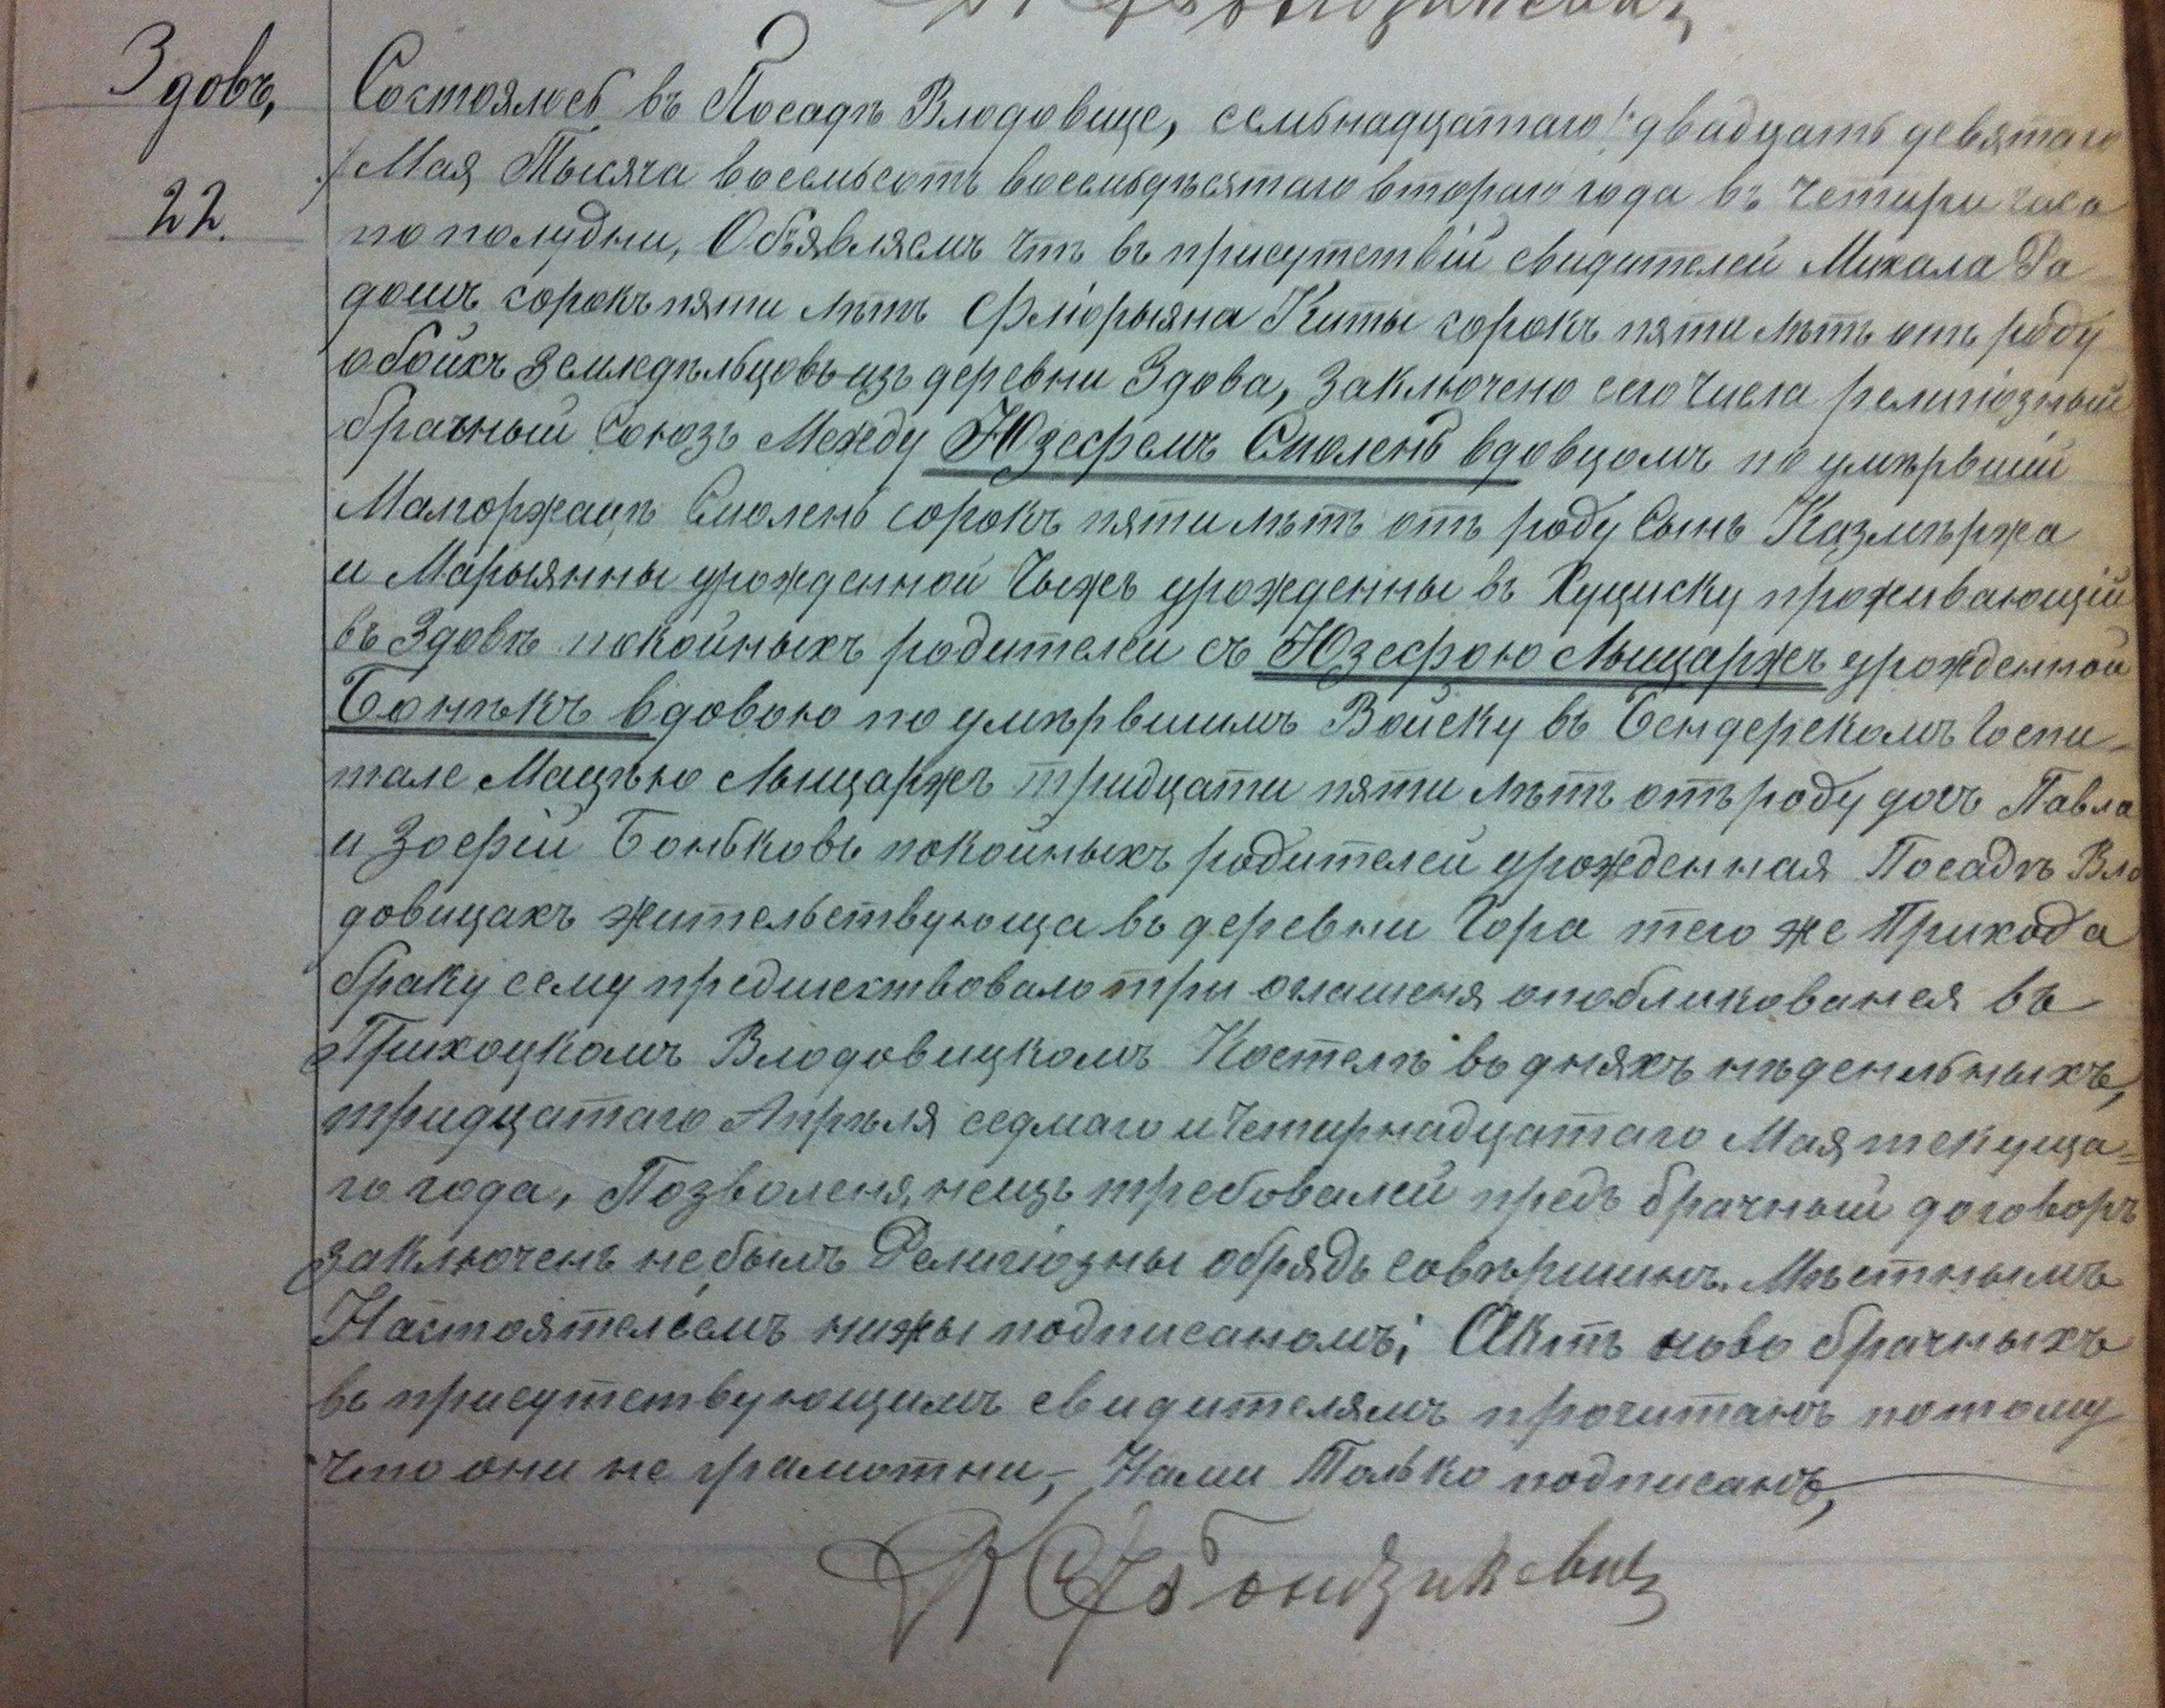 Здовъ,
22.
Состоялось въ Посадѣ Влодовице, семьнадцатаго /: двадцать девятаго
:/ Мая Тысяча восемьсотъ восемьдѣсятаго втораго года въ четири часа
по полудни, Объявляемъ что въ присутствіи свидителей Михала Ра
дошъ сорокъ пяти лѣтъ Флюрыяна Киты сорокъ пяти лѣтъ отъ роду
обойхъ земледѣльцовъ изъ деревни Здова, Заключено сего числа религіозный
брачный союзъ Между Юзефемъ Смолень вдовцомъ по умѣршій
Малгоржацѣ Смолень сорокъ пяти лѣтъ отъ роду Сынъ Казмѣржа
и Марыянны урожденной Чыжъ урожденны въ Хуциску проживающій
въ Здовѣ покойныхъ родителей съ Юзефою Лыщаржъ урожденной
Бонѣкъ вдовою по умѣрвшимъ Войску въ Бендерскомъ Госпи-
тале Мацѣю Лыщаржъ тридцати пяти лѣтъ отъ роду дочъ Павла
и Зофій Боньковъ покойныхъ родителей урожденная Посадѣ Вло
довицахъ жительствующа въ деревни Гора того же Прихода
браку сему предшехтвовало три оглашеня опобликованея въ
Прихоцкомъ Влодовицкомъ Костелѣ въ дняхъ нѣденльныхъ,
тридцатаго Апрѣля седмаго и Четирнадцатаго Мая текуща=
го года, Позволеня нещъ требовалей предъ брачный договоръ
заключенъ не былъ Религіозны обрядъ совѣршинъ Мѣстнымъ
Настоятелемъ нижы подписаномъ; Актъ ново брачныхъ
въ присутствующимъ свидителямъ прочитанъ потому
что они не грамотни,- Нами Только подписанъ,